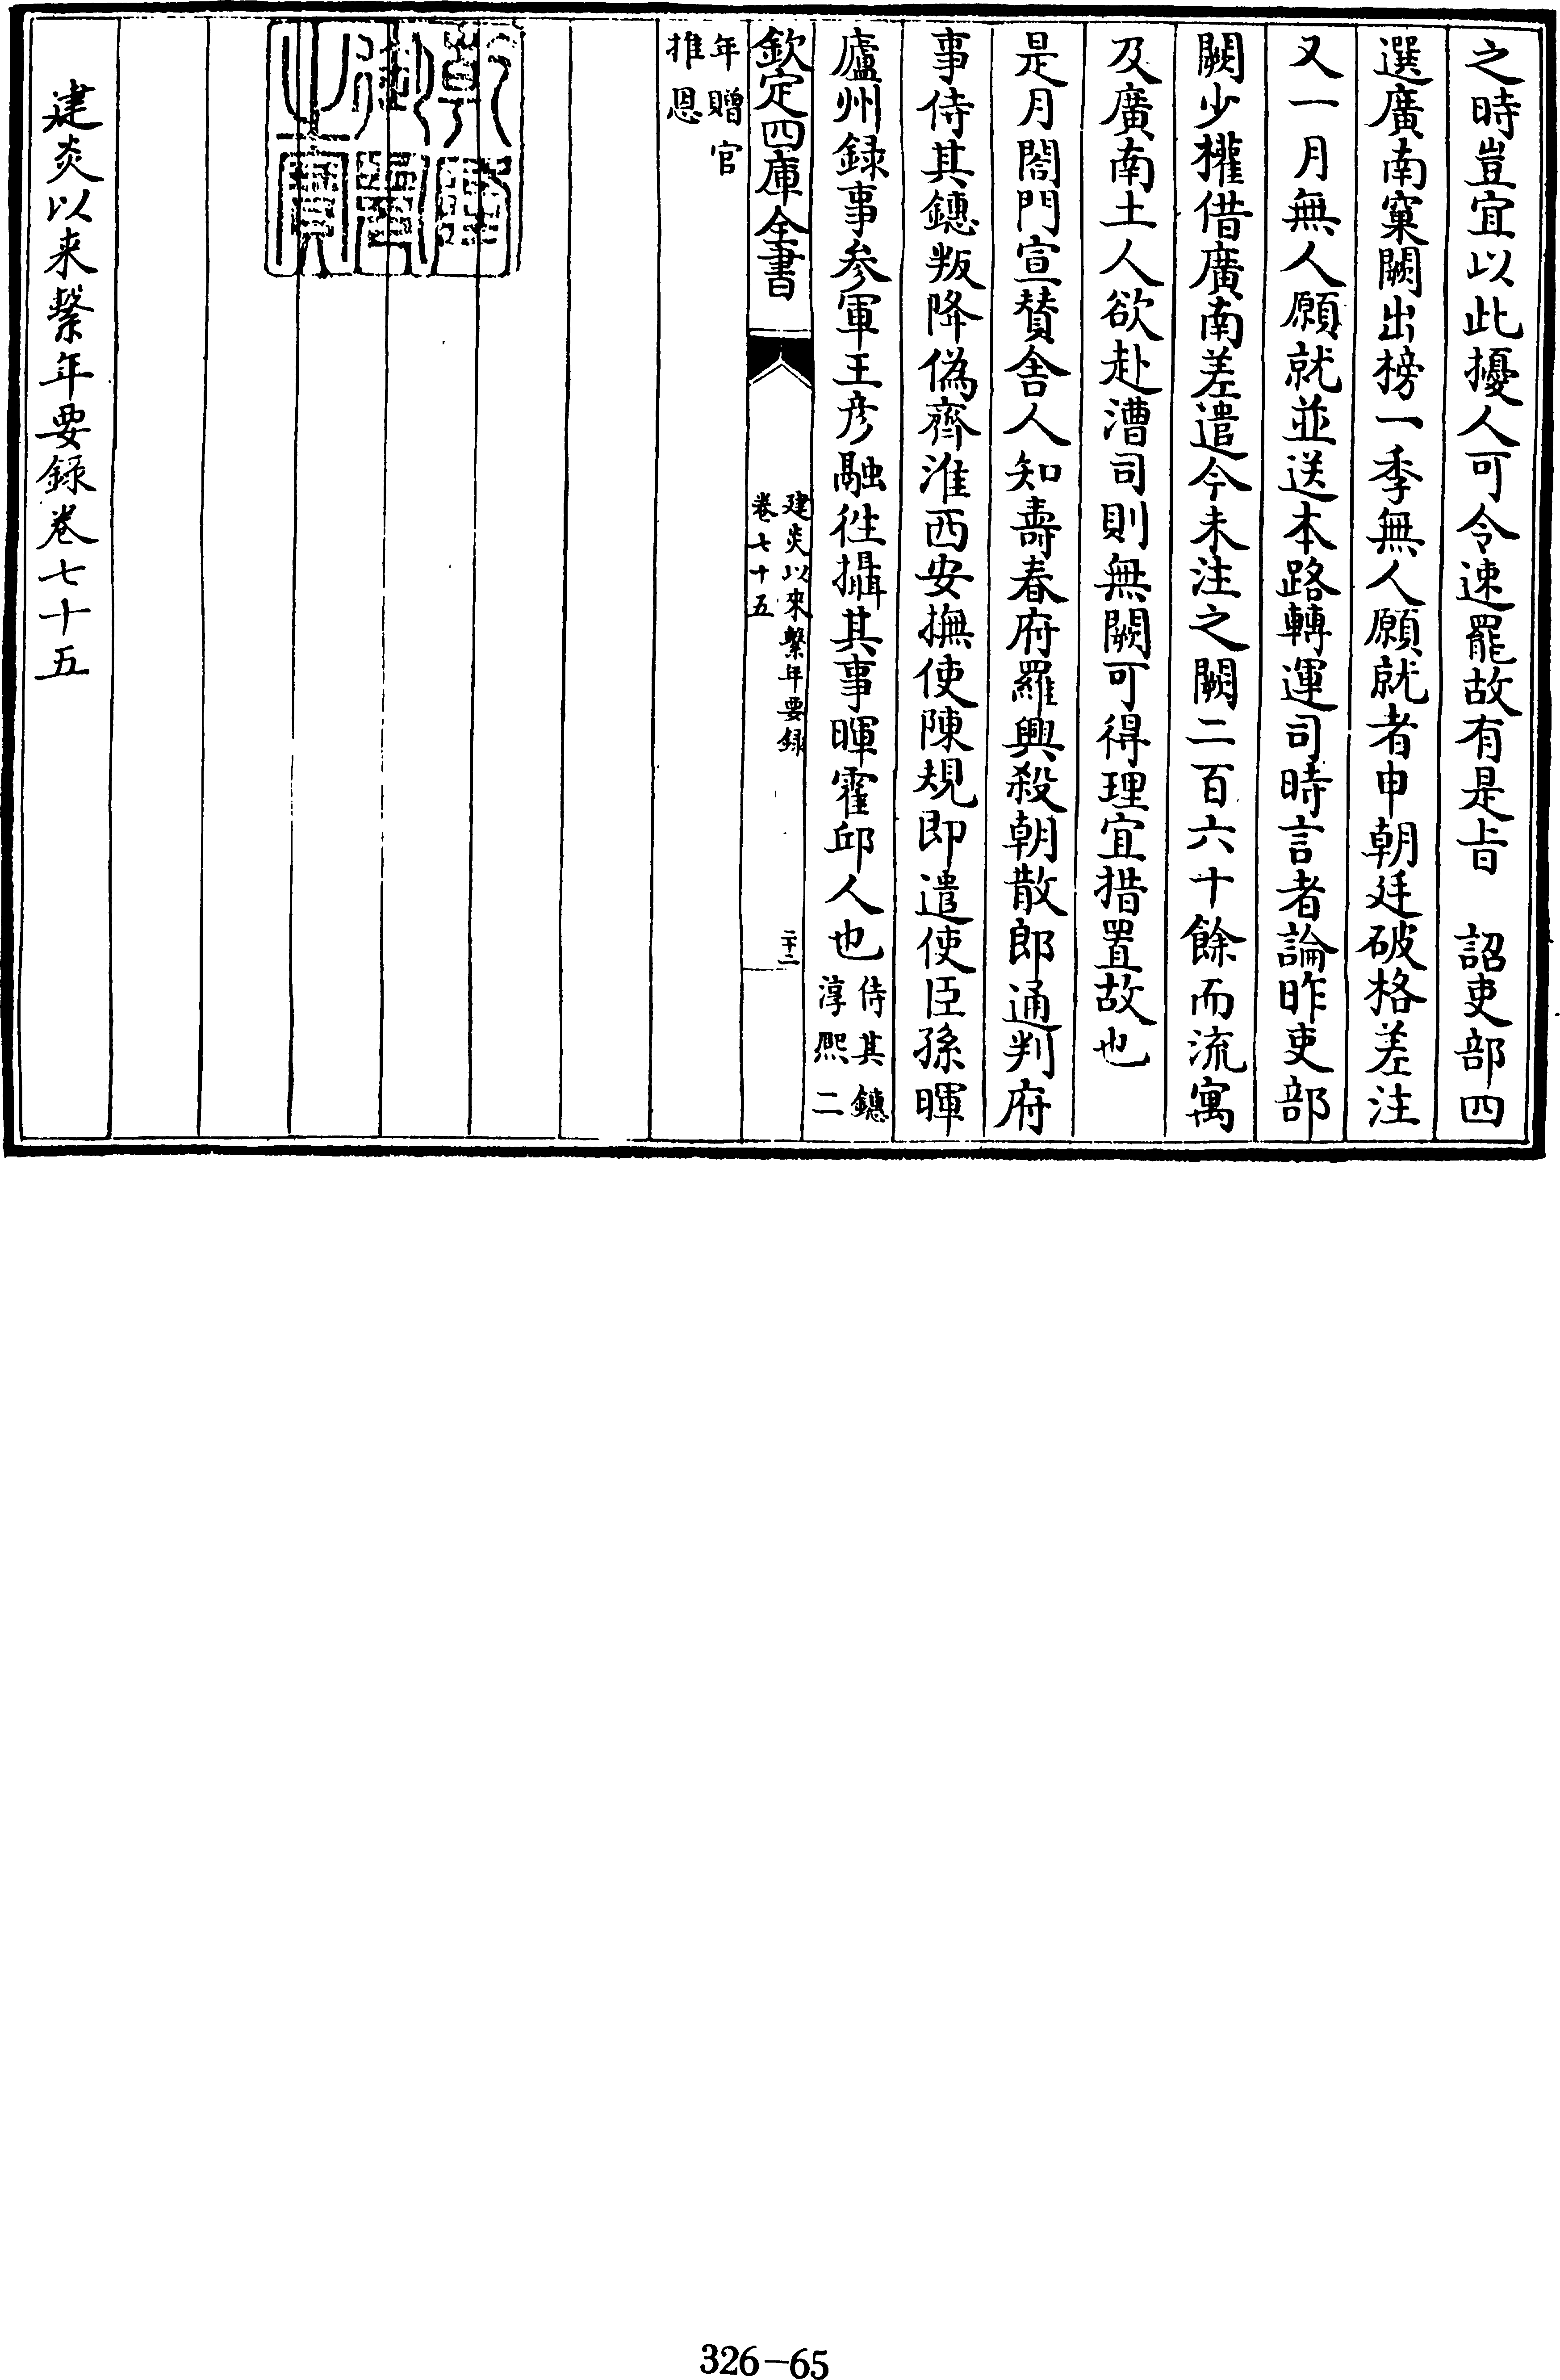 之時豈宜以此擾人可令速罷故有是旨　詔吏部四
選廣南窠闕出榜一季無人願就者申朝廷破格差注
又一月無人願就並送本路轉運司時言者論昨吏部
闕少權借廣南差遣今未注之闕二百六十餘而流寓
及廣南土人欲赴漕司則無闕可得理宜措置故也
是月閤門宣賛舍人知壽春府羅興殺朝散郎通判府
事侍其鏸叛降偽齊淮西安撫使陳規即遣使臣孫暉
廬州録事參軍王彦融徃攝其事暉霍邱人也侍其鏸
淳熈二
欽定四庫全書
建炎以來繫年要録
卷七十五
二十二
年贈官
推恩
乾隆御覽之寶
建炎以来繫年要録卷七十五
326-65